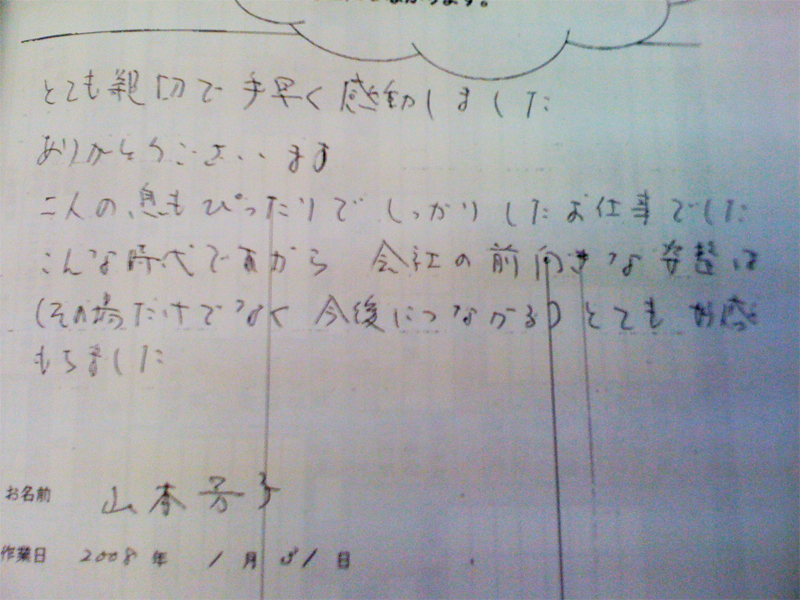 ながります。
とても親切で 手早く 感動しました
ありがとうございます
二人の息もぴったりで しっかりしたお仕事でした
こんな時代ですから 会社の前向きな姿勢は
(その場だけでなく 今後につながる)とても 好感
もちました
お名前 山本芳子
作業日 2008年 1月31日